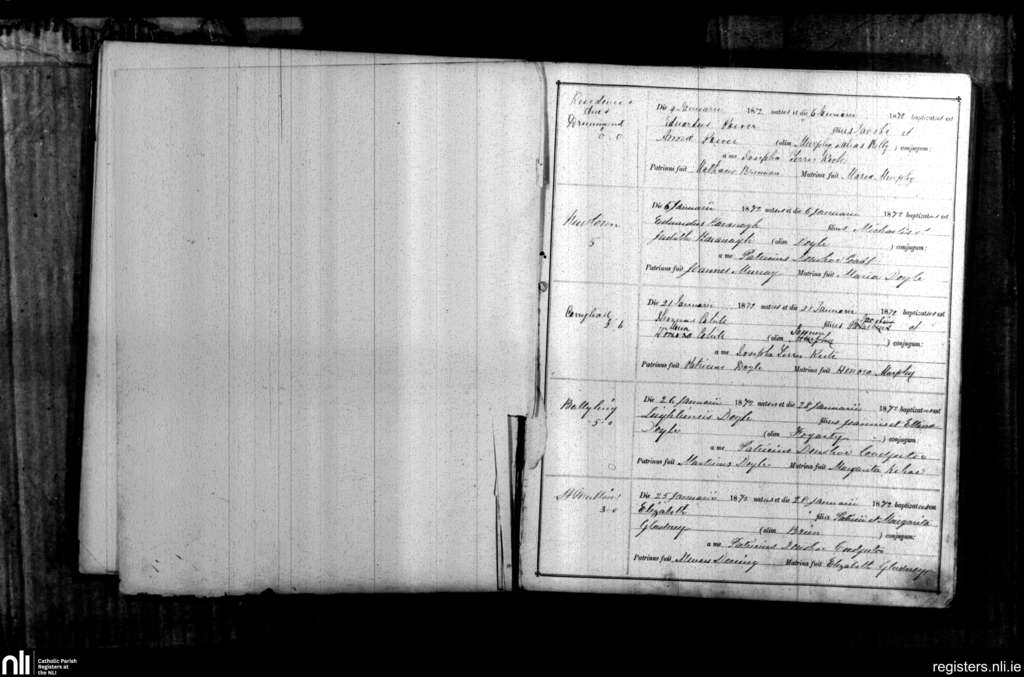 Residence &
dues
Drummond
0 0
Die 4 Januarii 1872 natus et die 6 Januarii 1872 baptizatus est
Power filius Jacobi et
Power (olim Murphy alias Kelly) conjugum:
a me Josepho
Patrinus fuit Brennan Matrina fuit Maria Murphy
Newtown
5
Die 5 Januarii 1872 natus et die 6 Januarii 1872 baptizatus est
Edmundus Kavanagh filius Michaelis et
Judith Kavanagh (olim Doyle) conjugum:
a me Patricius Donohoe
Patrinus fuit Joannes Murray Matrina fuit Maria Doyle
Die 21 Januarii 1872 natus et die 21 Januarii 1872 baptizatus est
Thomas filius et
(olim Murphy) conjugum:
a me Josepho
Patrinus fuit Patricius Doyle Matrina fuit Honora Murphy
Ballyling
5 0
Die 26 Januarii 1872 natus et die 28 Januarii 1872 baptizatus est
Doyle filius Joannis et Ellena
Doyle (olim Hogarty) conjugum:
a me Patricius Donohoe Coadjutor
Patrinus fuit Martinus Doyle Matrina fuit Margarita
St Mullins
3 0
Die 25 Januarii 1872 natus et die 28 Januarii 1872 baptizatus est
Elizabeth filia Patricii et Margarita
Gladney (olim Brien) conjugum:
a me Patricius Donohoe Coadjutor
Patrinus fuit Matrina fuit Elizabeth Gladney
nli
Catholic Parish
Registers at
the NLI
registers.nli.ie